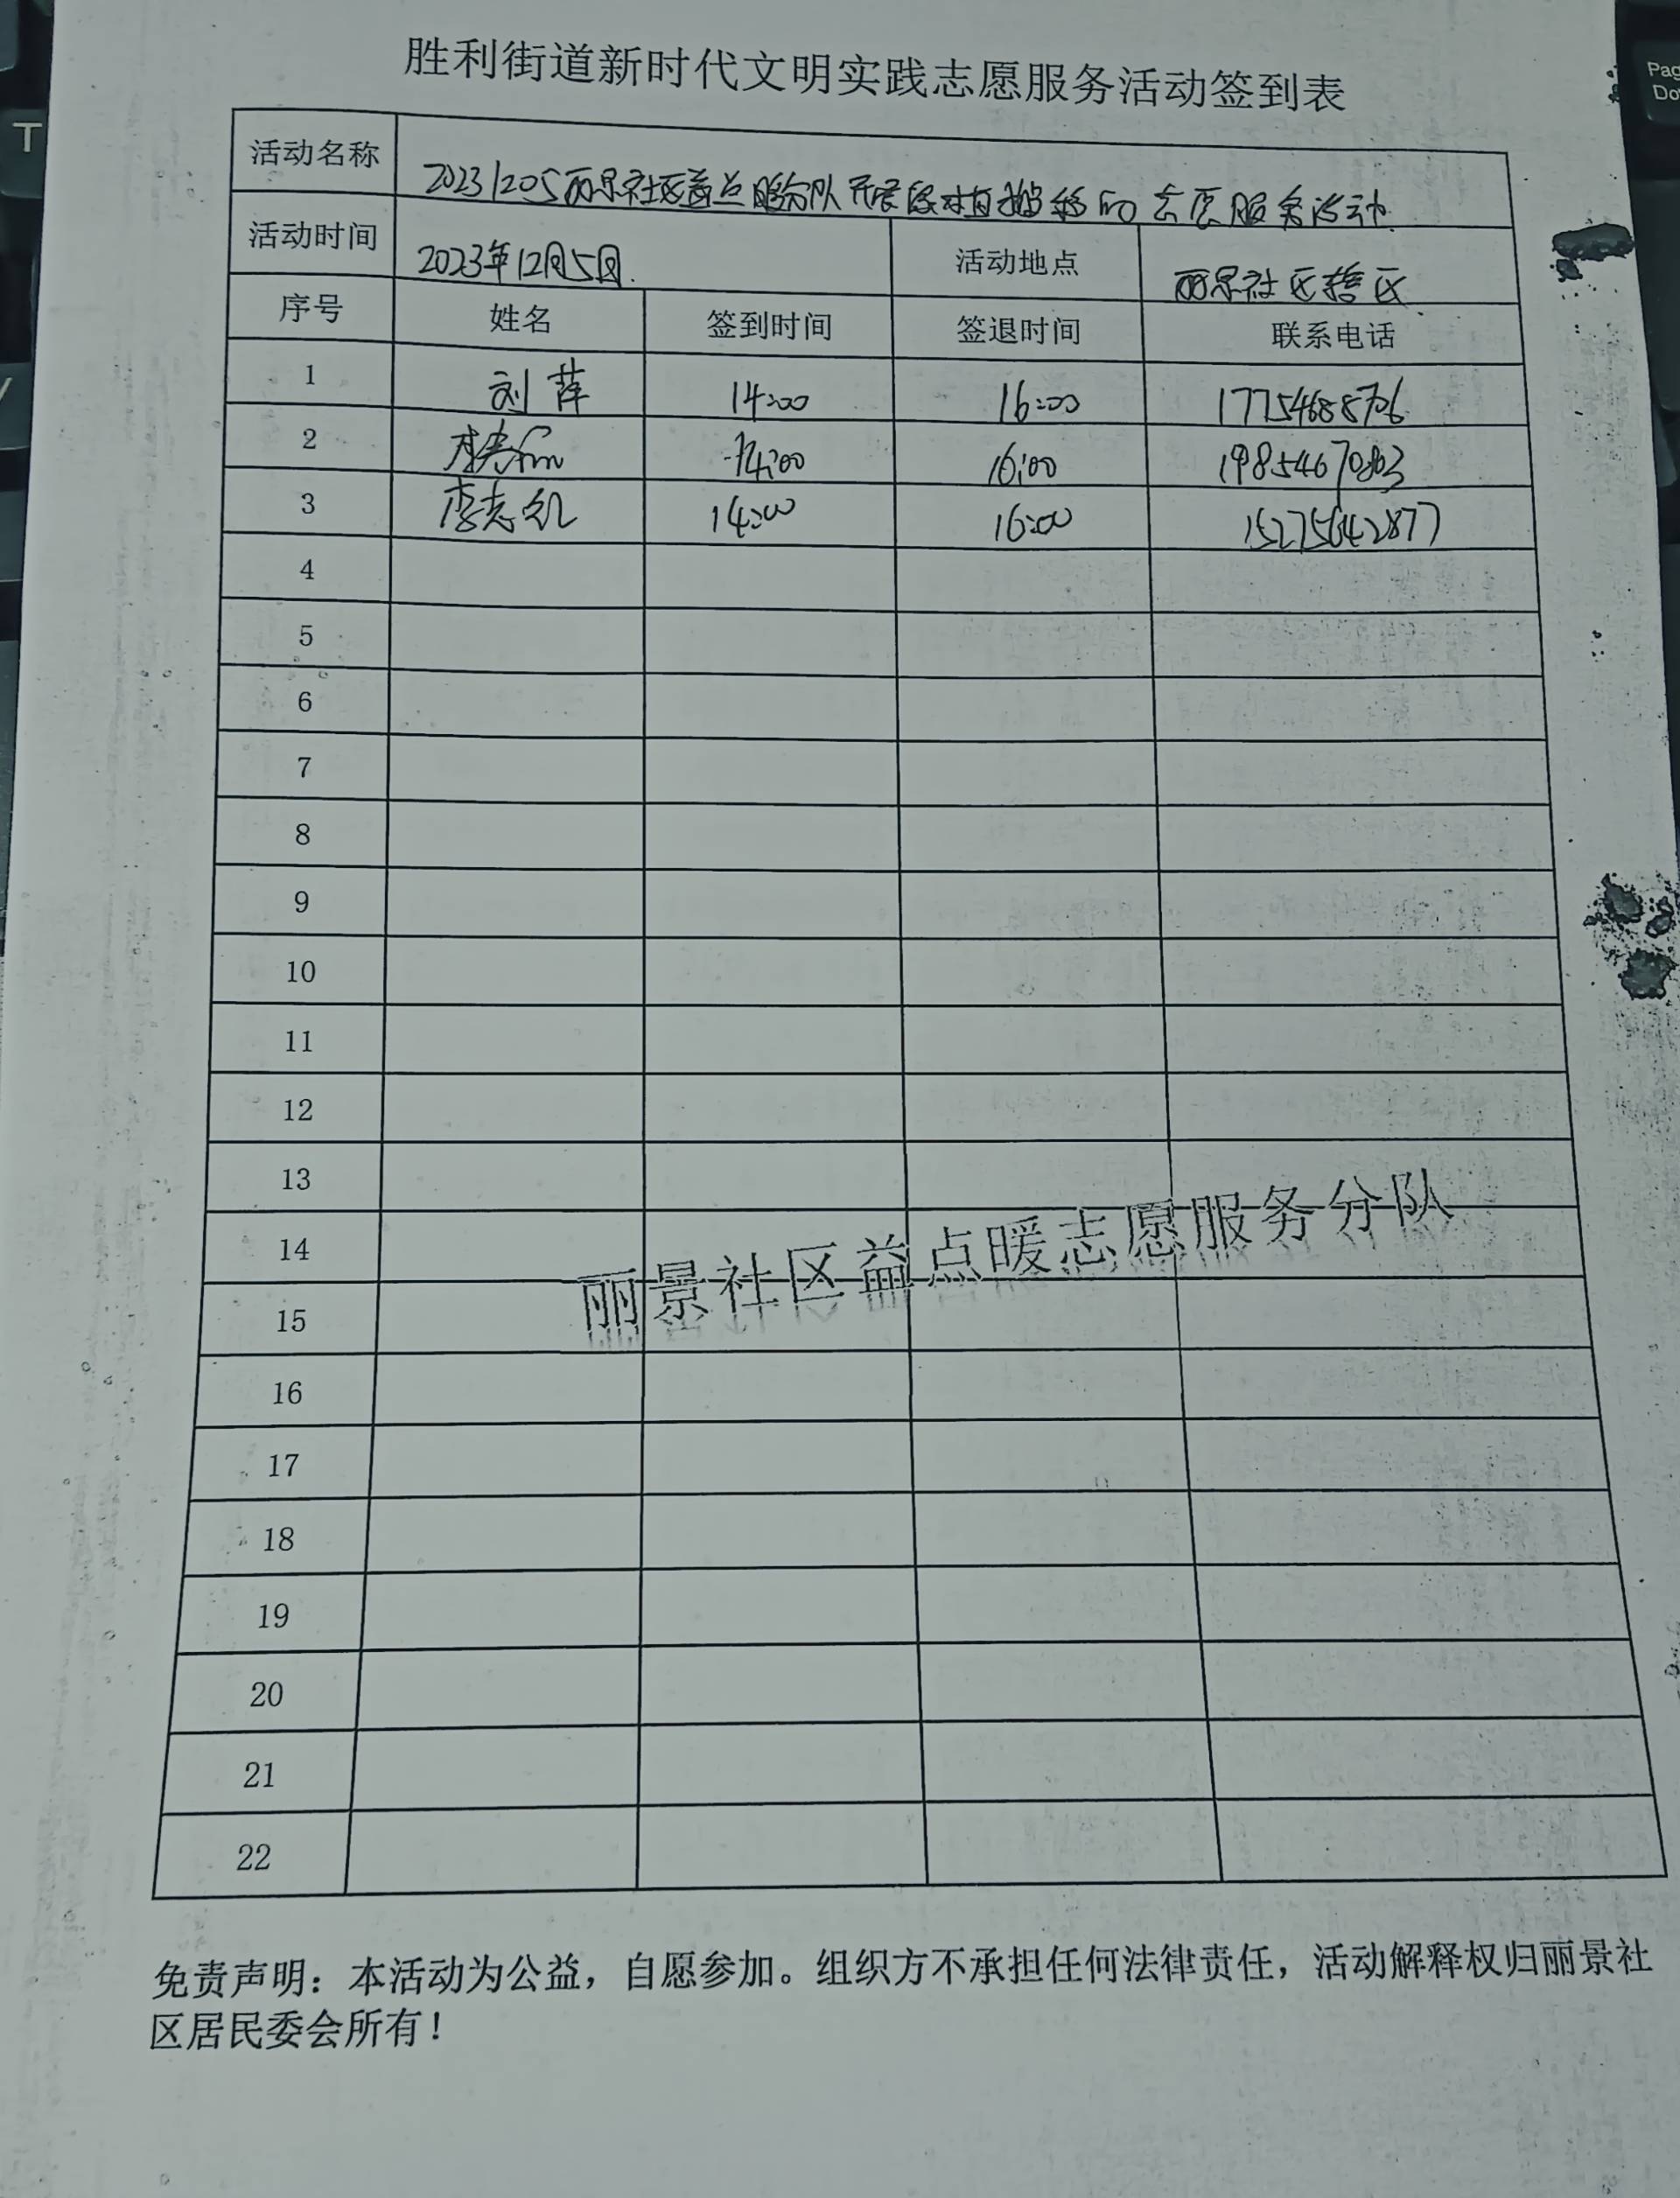 胜利街道新时代文明实践志愿服务活动签到表
活动名称 20231205丽景社区益点暖分队开展绿植的志愿服务活动
活动时间 2023年12月5日. 活动地点 丽景社区辖区
序号 姓名 签到时间 签退时间 联系电话
1 刘萍 14:00 16:00 17754688706
2 14:00 16:00
3 李志红 14:00 16:00 15275642877
4
5
6
7
8
9
10
11
12
13
14
丽景社区益点暖志愿服务分队
15
16
17
18
19
20
21
22
免责声明：本活动为公益，自愿参加。组织方不承担任何法律责任，活动解释权归丽景社
区居民委会所有！
T
Pag
Do